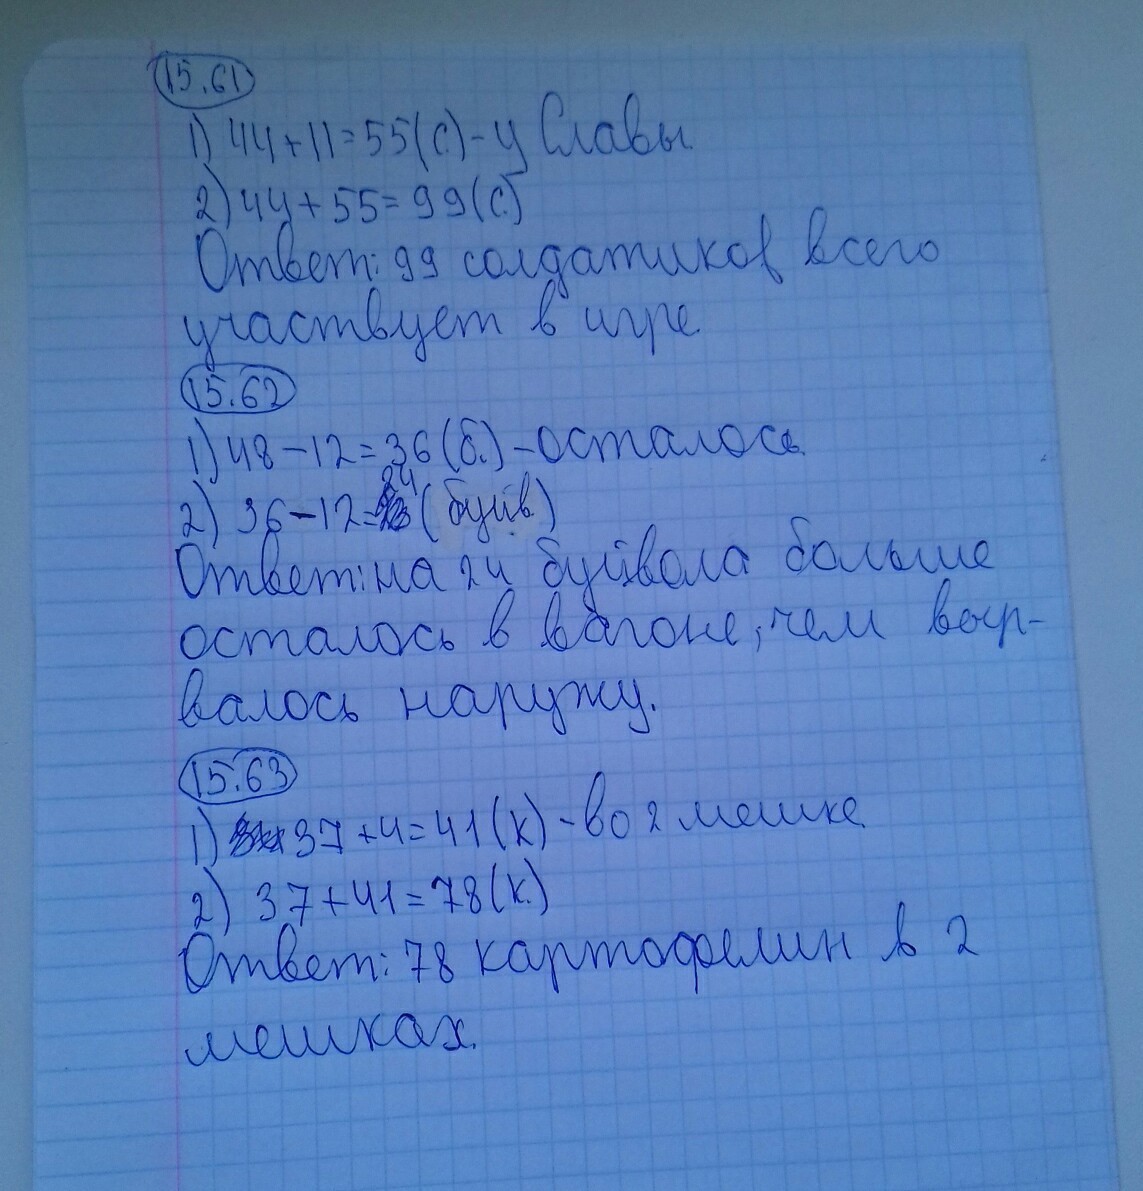 15.61
1) 44+11=55(с)-у Славы.
2) 44+55=99(с.)
Ответ: 99 солдатиков всего
участвует в игре.
15.62
1) 48-12=36(б.)-осталось.
2) 36-12=24(буйв.)
Ответ: на 24 буйвола больше
осталось в вагоне, чем выр-
валось наружу.
15.63
1) 37+4=41(к)-во 2 мешке.
2) 37+41=78(к.)
Ответ: 78 картофелин в 2
мешках.